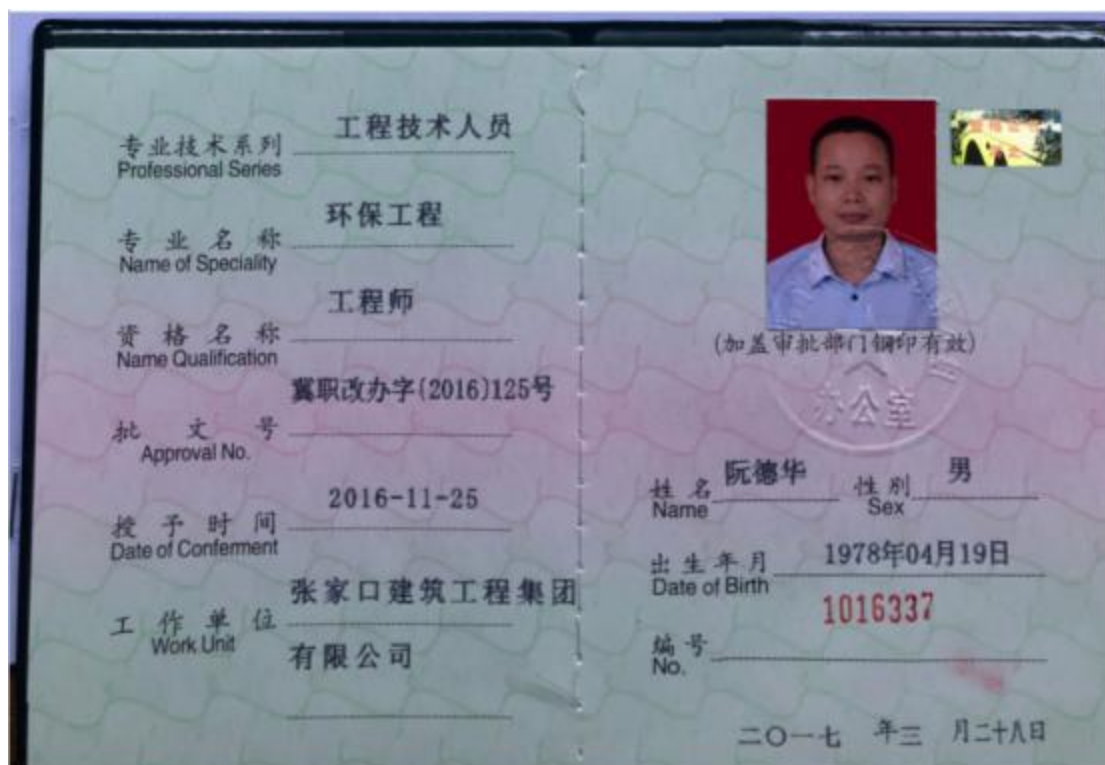 专业技术系列 工程技术人员
Professional Series
专业名称 环保工程
Name of Speciality
资格名称 工程师
Name Qualification
批文号 冀职改办字(2016)125号
Approval No.
授予时间 2016-11-25
Date of Conferment
工作单位 张家口建筑工程集团
Work Unit
有限公司
(加盖审批部门钢印有效)
办公室
姓名 阮德华 性别 男
Name Sex
出生年月 1978年04月19日
Date of Birth
1016337
编号
No.
二〇一七 年三 月二十八日